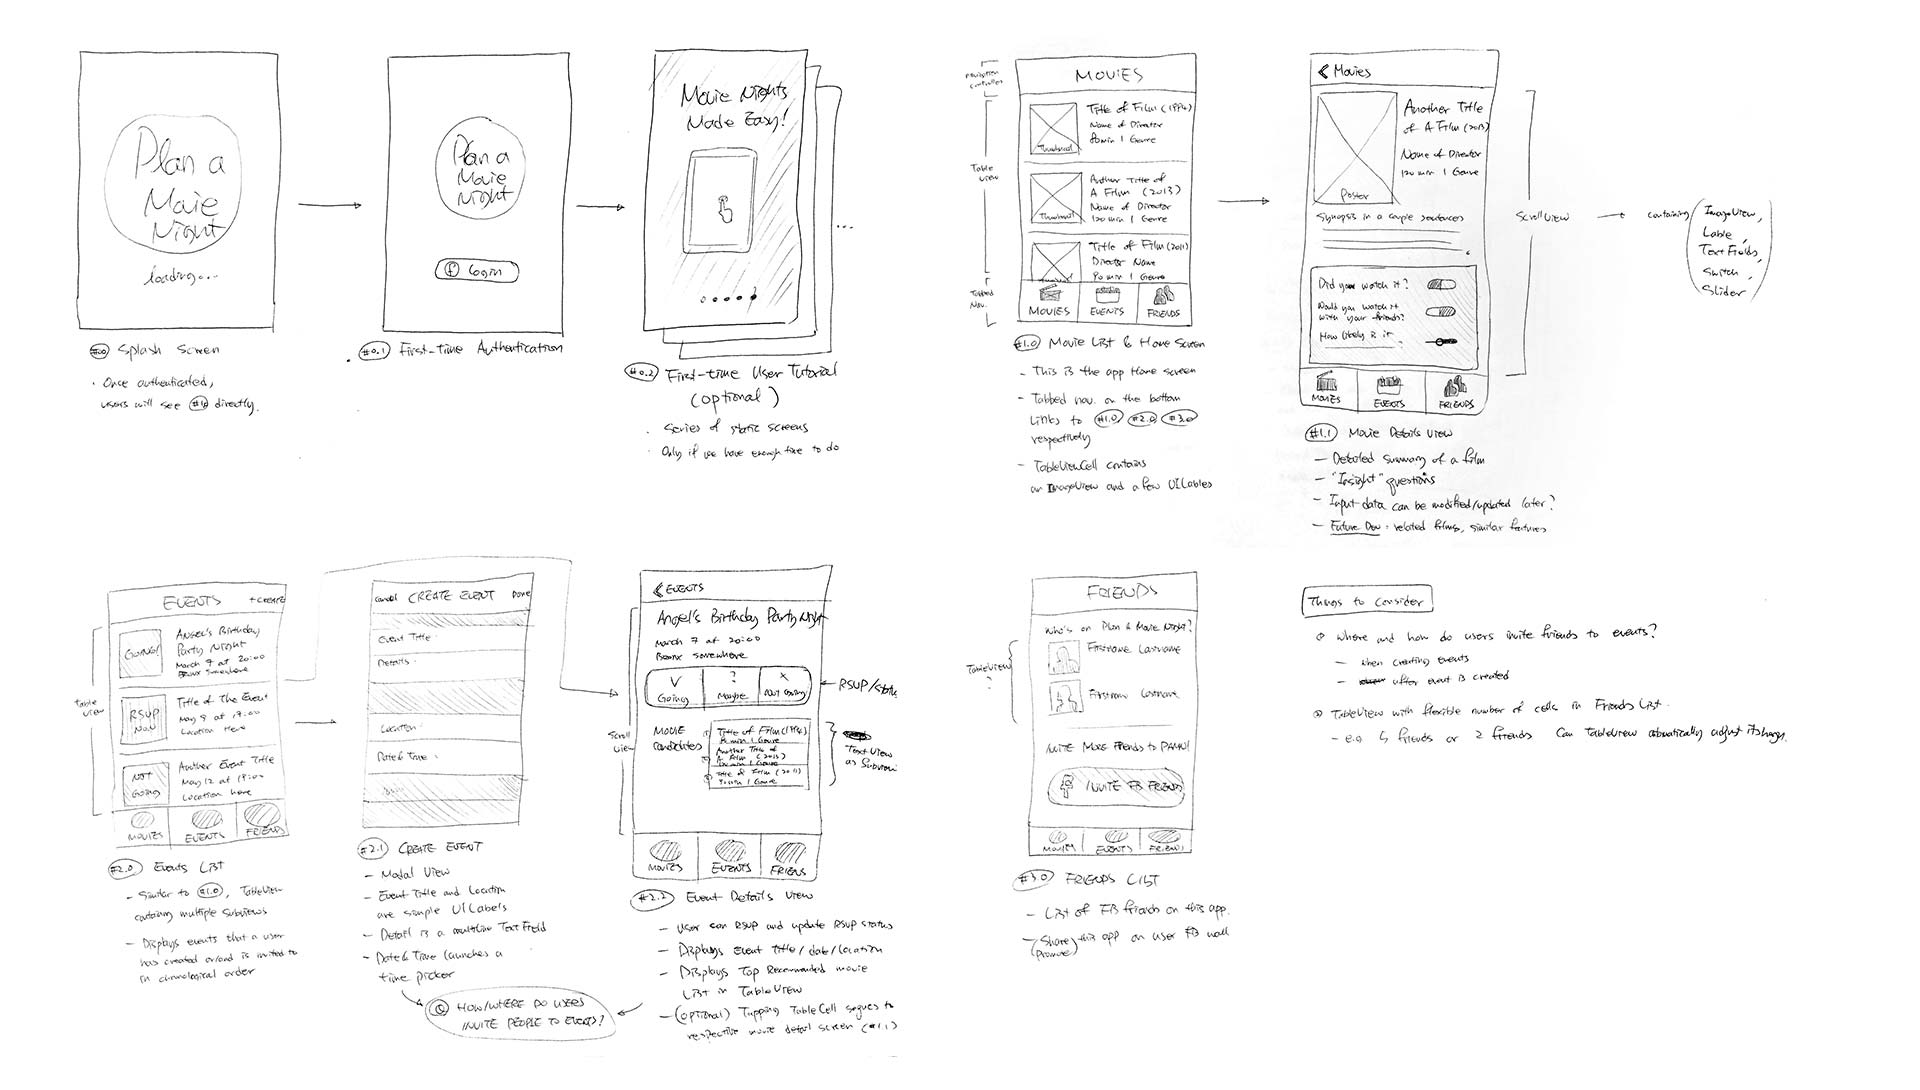 Plan a
Movie
Night
loading...
#0.0 Splash Screen
• Once authenticated,
users will see #1.0 directly.
Plan a
Movie
Night
f Login
#0.1 First-time Authentication
Movie Nights
Made Easy!
...
#0.2 First-time User Tutorial
(optional)
• Series of static screens
• Only if we have enough time to do
Navigation
controller
Table
View
Tabbed
Nav.
MOVIES
Thumbnail
Title of Film (1994)
Name of Director
80 min | Genre
Thumbnail
Another Title of
A Film (2013)
Name of Director
120 min | Genre
Thumbnail
Title of Film (2011)
Director Name
90 min | Genre
MOVIES
EVENTS
FRIENDS
#1.0 Movie List & Home Screen
- This is the app Home screen
- Tabbed nav. on the bottom
Links to #1.0, #2.0, #3.0
respectively
- TableViewCell contains
an ImageView and a few UILables
< Movies
Poster
Another Title
of A Film (2013)
Name of Director
120 min | Genre
Synopsis in a couple sentences
Did you watch it?
Would you watch it
with your friends?
How likely is it
MOVIES
EVENTS
FRIENDS
ScrollView
containing
ImageView,
Lable,
TextFields,
Switch,
Slider
#1.1 Movie Details View
- Detailed summary of a film
- "Insight" questions
- Input data can be modified/updated later?
- Future Dev: related films, similar features
Table
View
EVENTS
+CREATE
GOING!
Angel's Birthday
Party Night
March 7 at 20:00
Bronx Somewhere
RSUP
Now
Title of The Event
May 9 at 17:00
Location Here
NOT
Going
Another Event Title
May 12 at 19:00
Location here
MOVIES
EVENTS
FRIENDS
#2.0 Events List
- Similar to #1.0, TableView
containing multiple Subviews
- Displays events that a user
has created or/and is invited to
in chronological order
Cancel
CREATE EVENT
Done
Event Title:
Details:
Location:
Date & Time:
#2.1 CREATE EVENT
- Modal View
- Event Title and Location
are simple UILabels
- Detail is a multiline TextField
- Date & Time launches a
time picker
HOW/WHERE DO USERS
INVITE PEOPLE TO EVENTS?
Scroll
View
< EVENTS
Angel's Birthday Party Night
March 7 at 20:00
Bronx Somewhere
V
Going
?
Maybe
x
Not Going
RSUP/status
MOVIE
Candidates
Title of Film (1994)
80 min | Genre
Another Title of
A Film (2013)
120 min | Genre
Title of Film (2011)
90 min | Genre
TextView
as Subview
MOVIES
EVENTS
FRIENDS
#2.2 Event Details View
- User can RSUP and update RSUP status
- Displays Event Title/date/location
- Displays Top Recommended movie
List in TableView
- (optional) Tapping TableCell segues to
respective movie detail screen (#1.1)
TableView
?
FRIENDS
Who's on Plan A Movie Night?
Firstname Lastname
Firstname Lastname
INVITE MORE Friends to PAMN!
f INVITE FB FRIENDS
MOVIES
EVENTS
FRIENDS
#3.0 FRIENDS LIST
- List of FB friends on this app.
- (Share) this app on user FB wall
(Promote)
Things to consider
Where and how do users invite friends to events?
- when creating events
- after event is created
TableView with flexible number of cells in Friends List.
- e.g. 5 friends or 2 friends Can TableView automatically adjust its